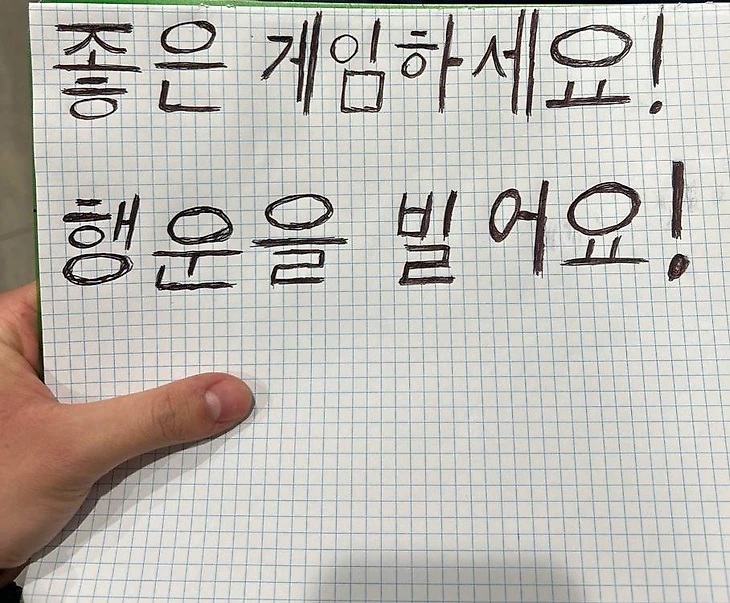 좋은 게임하세요!
행운을 빌어요!